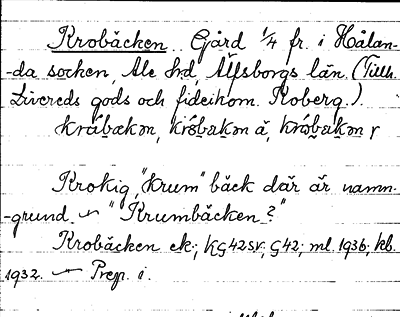 Krobäcken. Gård 1/4 fr. i Hålan-
-da socken, Ale hd, Älfsborgs län. (Tillh.
Livereds gods och fideikom. Koberg.)
Krokig, "krum" bäck där är namn-
-grund. "Krumbäcken?"
Krobäcken ek.; KG42SV, G42; ml. 1936; kb.
1932. Prep. i.